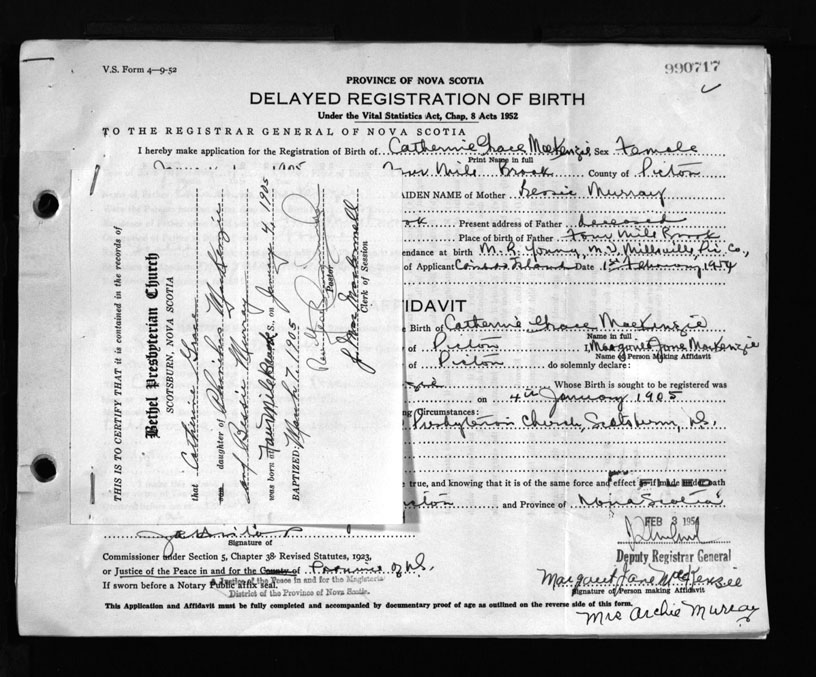 V.S. Form 4—9-52
990717
PROVINCE OF NOVA SCOTIA
DELAYED REGISTRATION OF BIRTH
Under the Vital Statistics Act, Chap. 8 Acts 1952
TO THE REGISTRAR GENERAL OF NOVA SCOTIA
I hereby make application for the Registration of Birth of Catherine Grace MacKenzie Sex Female
Print Name in full
Mile Brook County of Pictou
AIDEN NAME of Mother Bessie Murray
ok Present address of Father deceased
Place of birth of Father Four Mile Brook
endance at birth M. R. Young, M.D. Millsville, Pic. Co.,
of Applicant Island Date 1st February 1954
FIDAVIT
Birth of Catherine Grace MacKenzie
Name in full
of Pictou I, Margaret Jane MacKenzie
Name of Person Making Affidavit
of Pictou do solemnly declare:
Whose Birth is sought to be registered was
on 4th January 1905
g Circumstances:
Presbyterian Church, Scotsburn, N.S.
e true, and knowing that it is of the same force and effect as if made under oath
FILED
and Province of Nova Scotia
FEB 3 1954
Deputy Registrar General
Signature of
Commissioner under Section 5, Chapter 38 Revised Statutes, 1923,
or Justice of the Peace in and for the County of Province of N.S.
If sworn before a Notary Public affix seal.
a Justice of the Peace in and for the Magisterial
District of the Province of Nova Scotia.
Margaret Jane MacKenzie
Signature of Person making Affidavit
Mrs Archie Murray
This Application and Affidavit must be fully completed and accompanied by documentary proof of age as outlined on the reverse side of this form.
THIS IS TO CERTIFY THAT it is contained in the records of
Bethel Presbyterian Church
SCOTSBURN, NOVA SCOTIA
that Catherine Grace
son daughter of MacKenzie
and Bessie Murray
was born at Four Mile Brook N.S., on January 4, 1905
BAPTIZED: March 7, 1905
Pastor
Clerk of Session